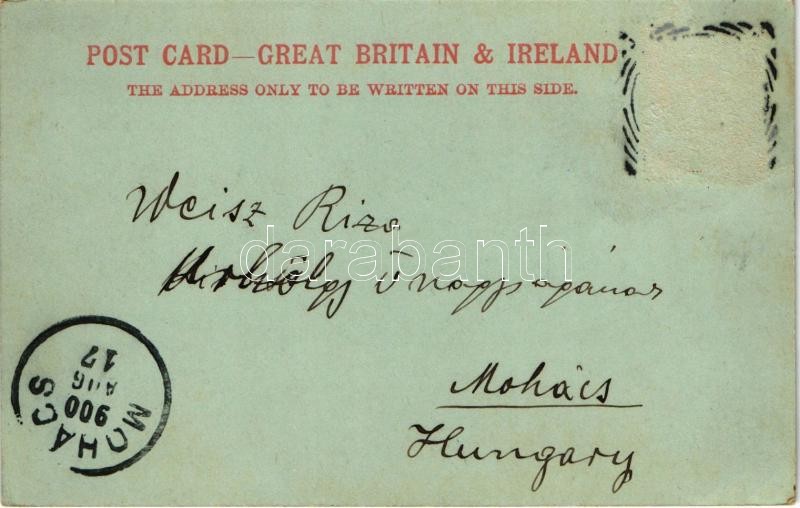 POST CARD—GREAT BRITAIN & IRELAND
THE ADDRESS ONLY TO BE WRITTEN ON THIS SIDE.
Weisz Riza
Úrhölgy Ő nagyságának
darabanth
Mohács
Hungary
MOHÁCS
900
AUG
17